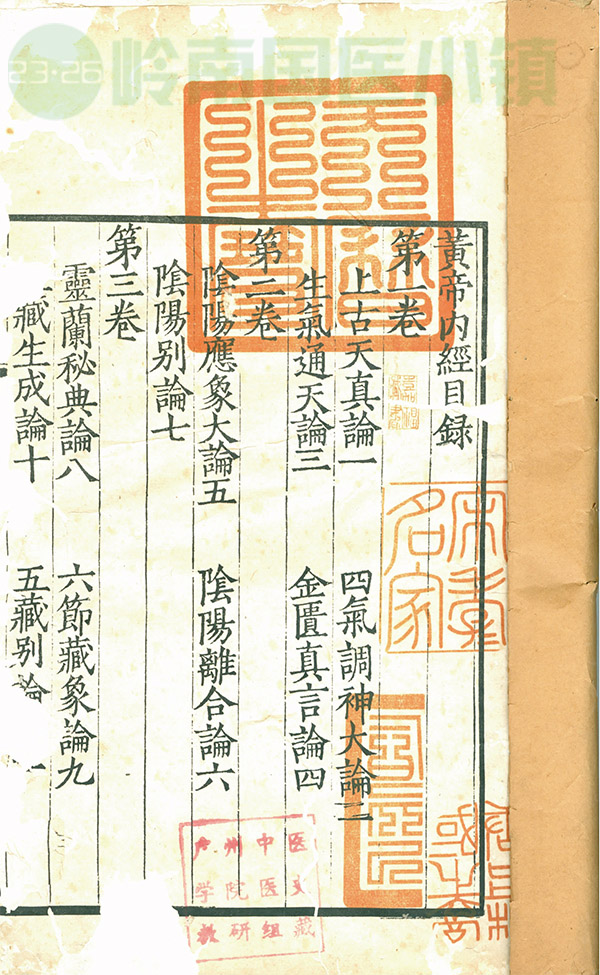 23·26 岭南国医小镇
黃帝内經目録
第一卷
上古天真論一 四氣調神大論二
生氣通天論三 金匱真言論四
第二卷
陰陽應象大論五 陰陽離合論六
陰陽别論七
第三卷
靈蘭秘典論八 六節藏象論九
藏生成論十 五藏别論
州中医
学院医
教研组藏